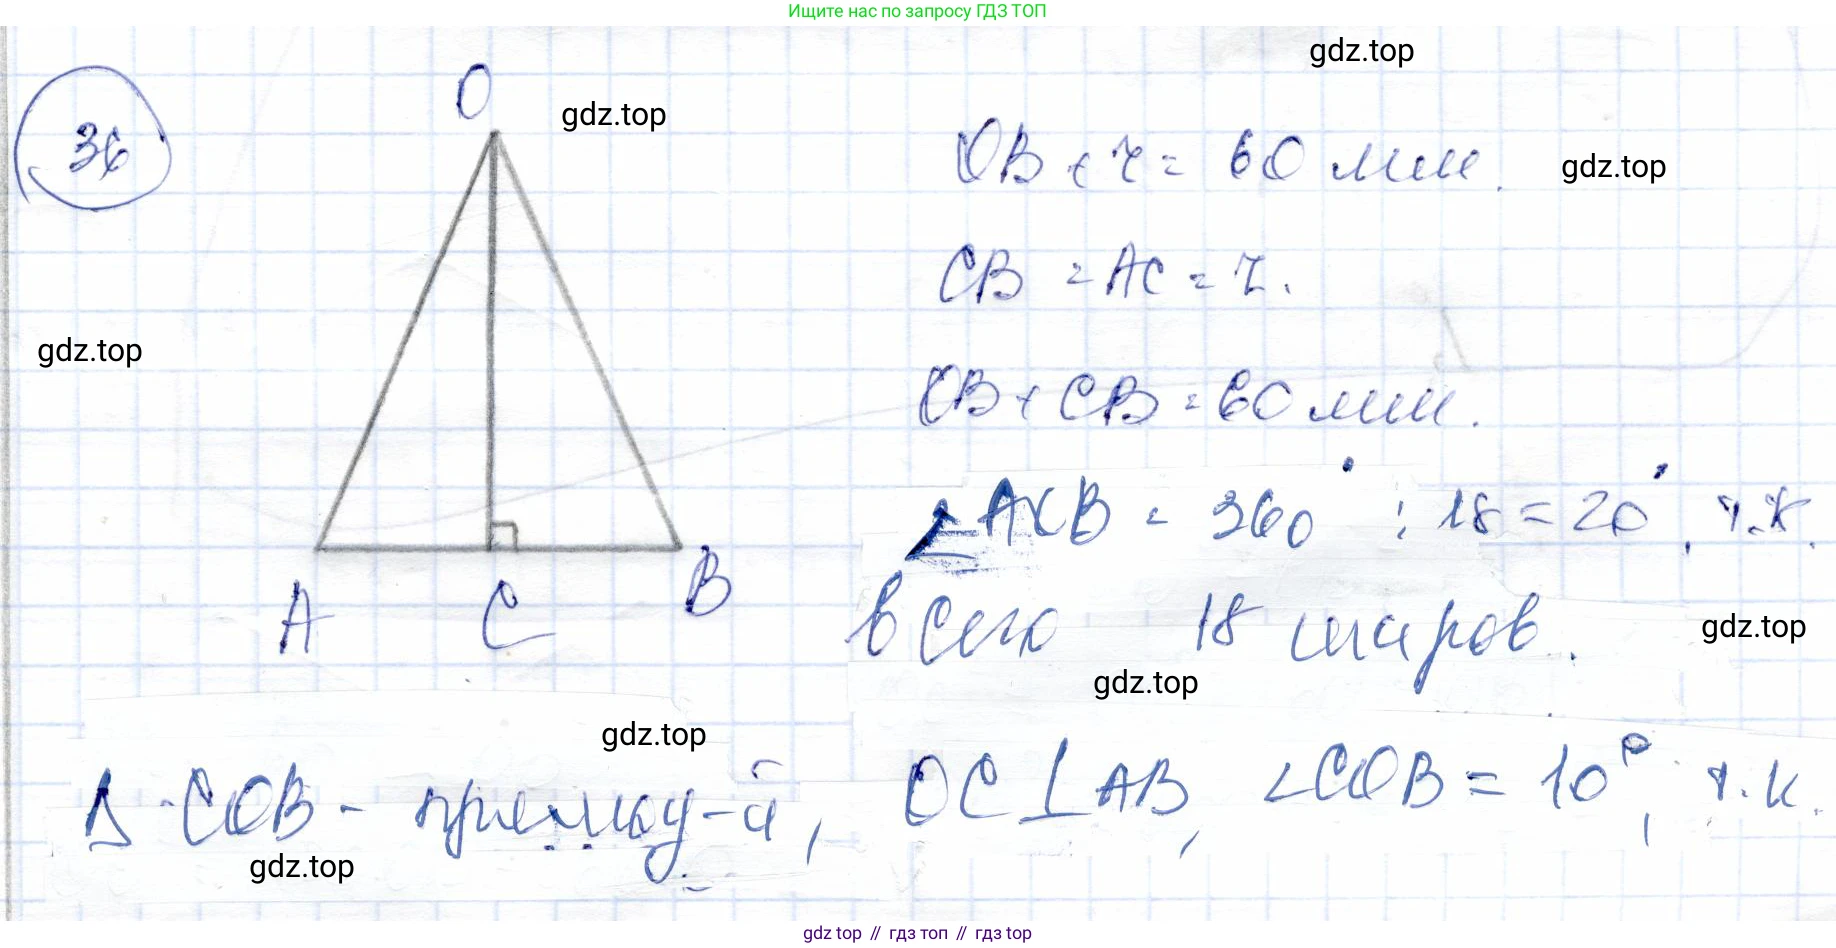 Ищите нас по запросу ГДЗ ТОП
gdz.top
36
O
gdz.top
OB + r = 60 мм.
gdz.top
CB = AC = r.
gdz.top
OB + CB = 60 мм.
∠AOB = 360° : 18 = 20°, т.к.
A
C
B
всего 18 шаров.
gdz.top
gdz.top
gdz.top
Δ COB - прямоу-й, OC ⊥ AB, ∠COB = 10°, т.к.
gdz.top
gdz top // гдз топ // гдз top